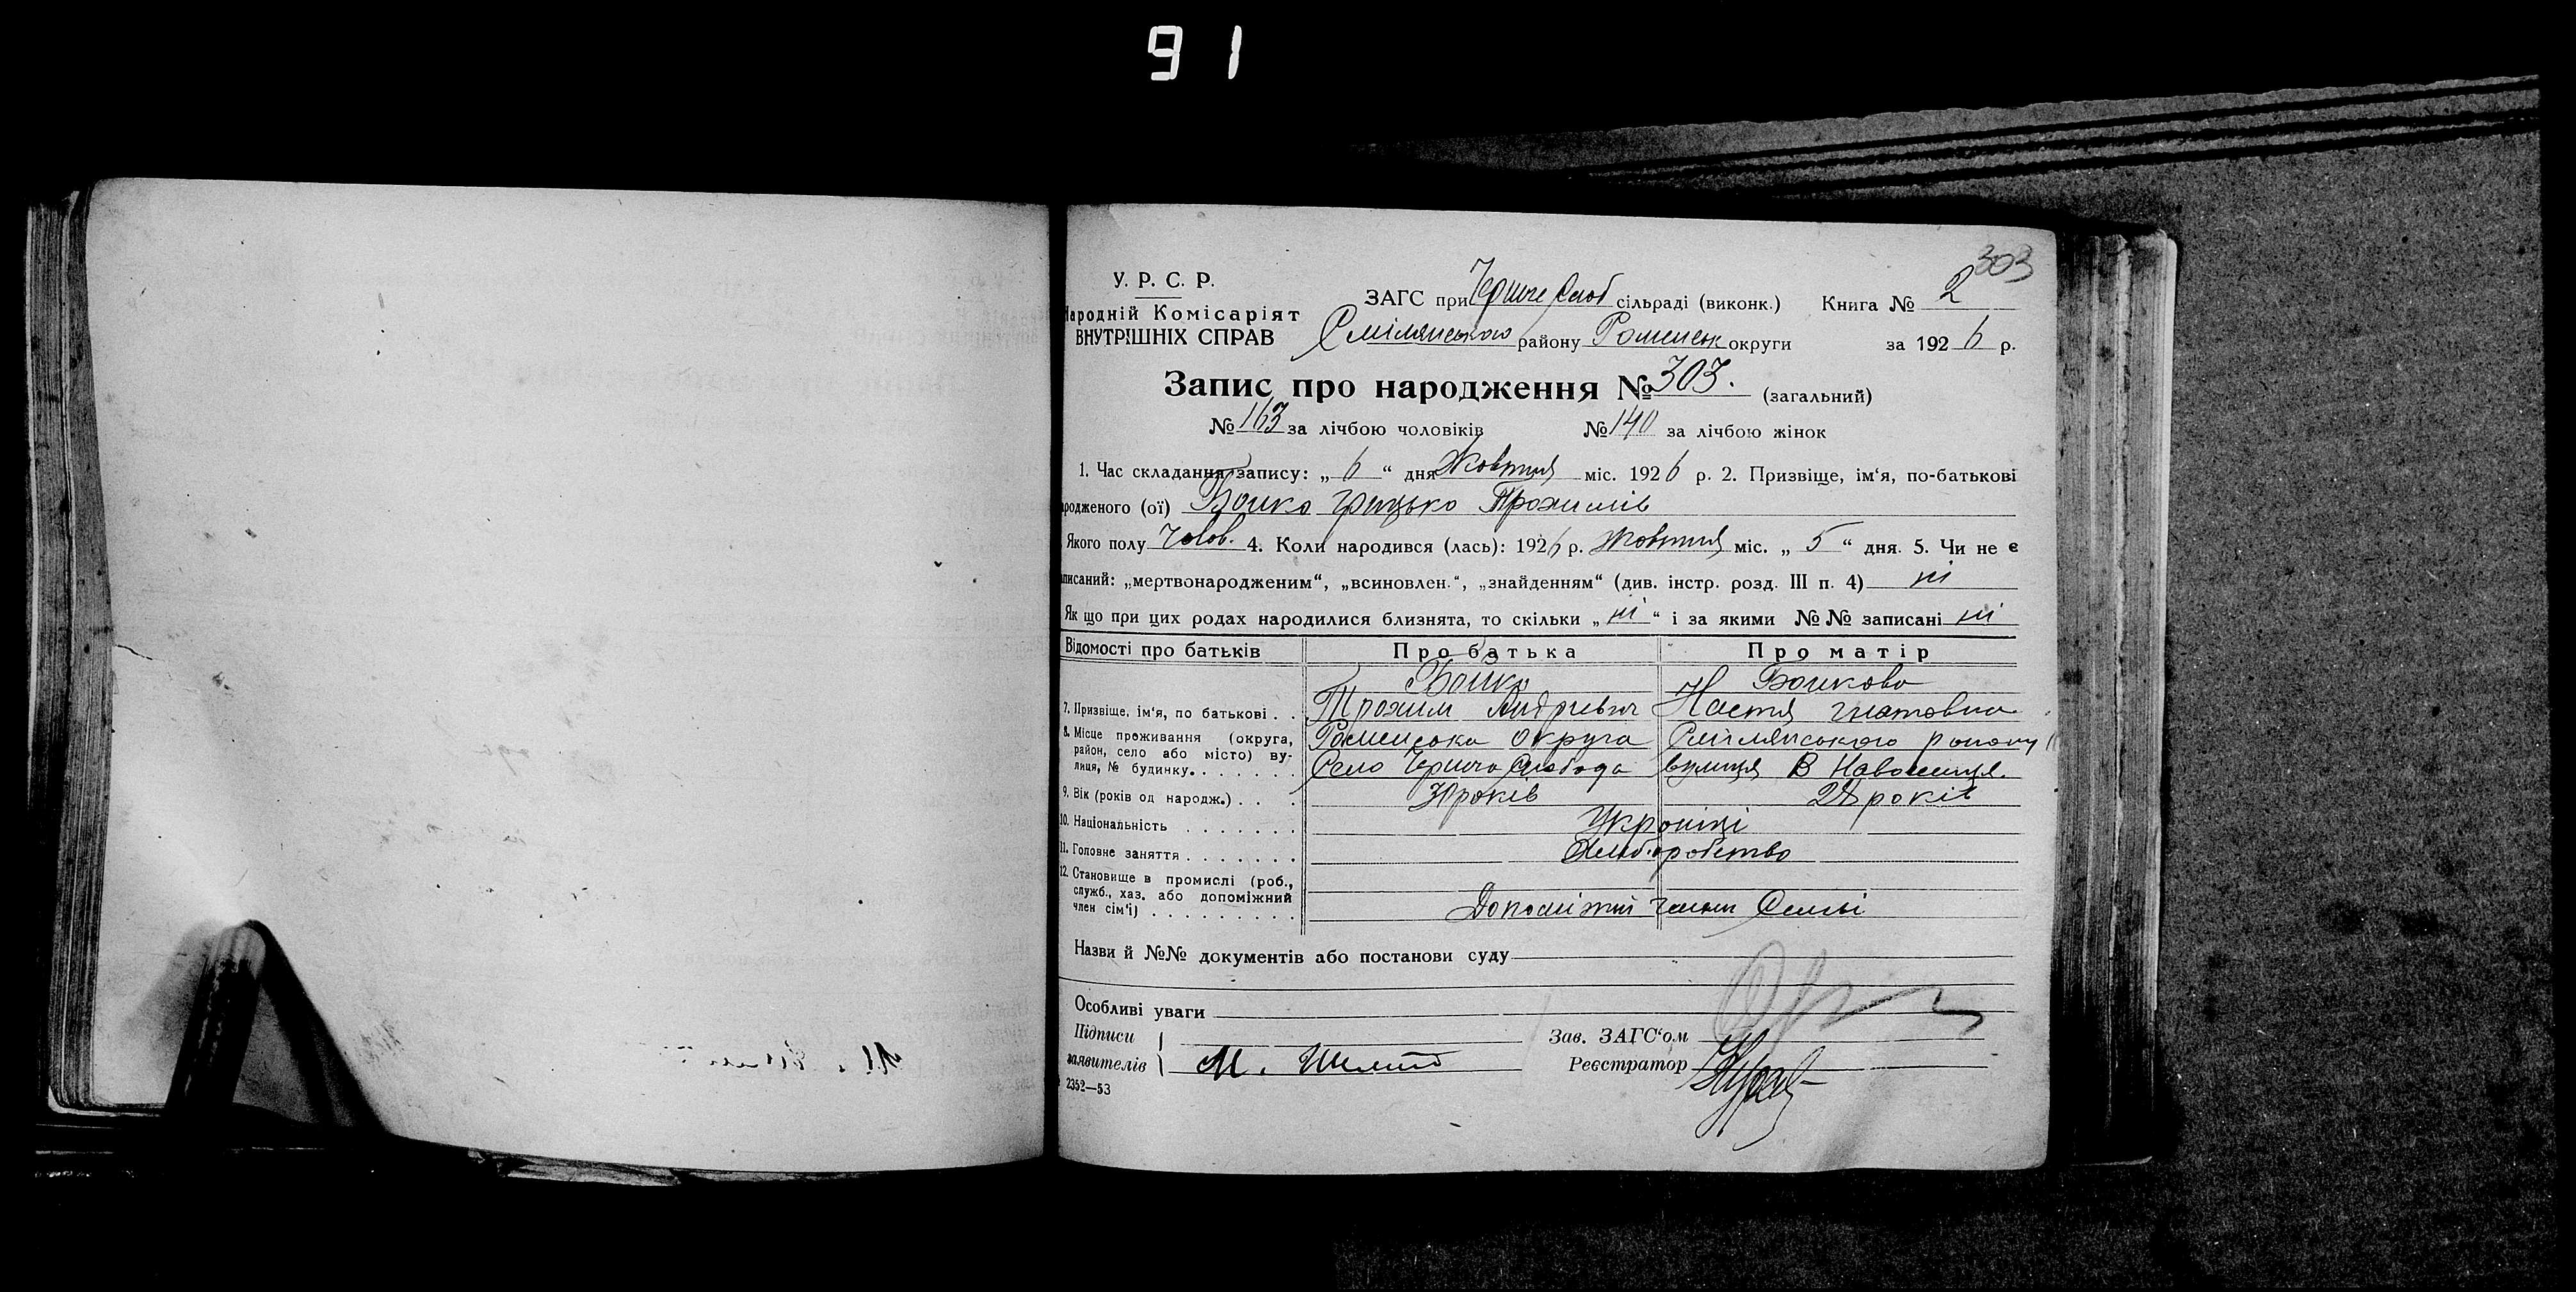 91
303
У. Р. С. Р.
Народній Комісаріят
ВНУТРІШНІХ СПРАВ
ЗАГС при Чернече Слоб сільраді (виконк.) Книга № 2
Смілянського району Роменськ округи за 1926 р.
Запис про народження № 303. (загальний)
№ 163 за лічбою чоловіків № 140 за лічбою жінок
1. Час складання запису: „ 6 “ дня Жовтня міс. 1926 р. 2. Призвіще, ім'я, по-батькові
родженого (ої) Бойко Грицько Трохимів
Якого полу Чолов. 4. Коли народився (лась): 1926 р. Жовтня міс. „ 5 “ дня. 5. Чи не є
писаний: „мертвонародженим“, „всиновлен.“, „знайденням“ (див. інстр. розд. III п. 4) ні
Як що при цих родах народилися близнята, то скільки „ ні “ і за якими №№ записані ні
Відомості про батьків Про батька Про матір
Бойко Бойкова
7. Призвіще, ім'я, по батькові . . Трохим Андрієвич Настя Гнатовна
8. Місце проживання (округа, Роменська округа Смілянського району
район, село або місто) ву-
лиця, № будинку. . . . . . . Село Чернеча Слобода вулиця В
9. Вік (років од народж.) . . . років 28 років
10. Національність . . . . . . . Українці
11. Головне заняття . . . . . . . Хліборобство
12. Становище в промислі (роб.,
служб., хаз. або допоміжний
член сім'ї) . . . . . . . . . Допоміжні члени Семьі
Назви й №№ документів або постанови суду
Особливі уваги
Підписи
Зав. ЗАГС'ом
заявителів М.
Реєстратор
2352—53